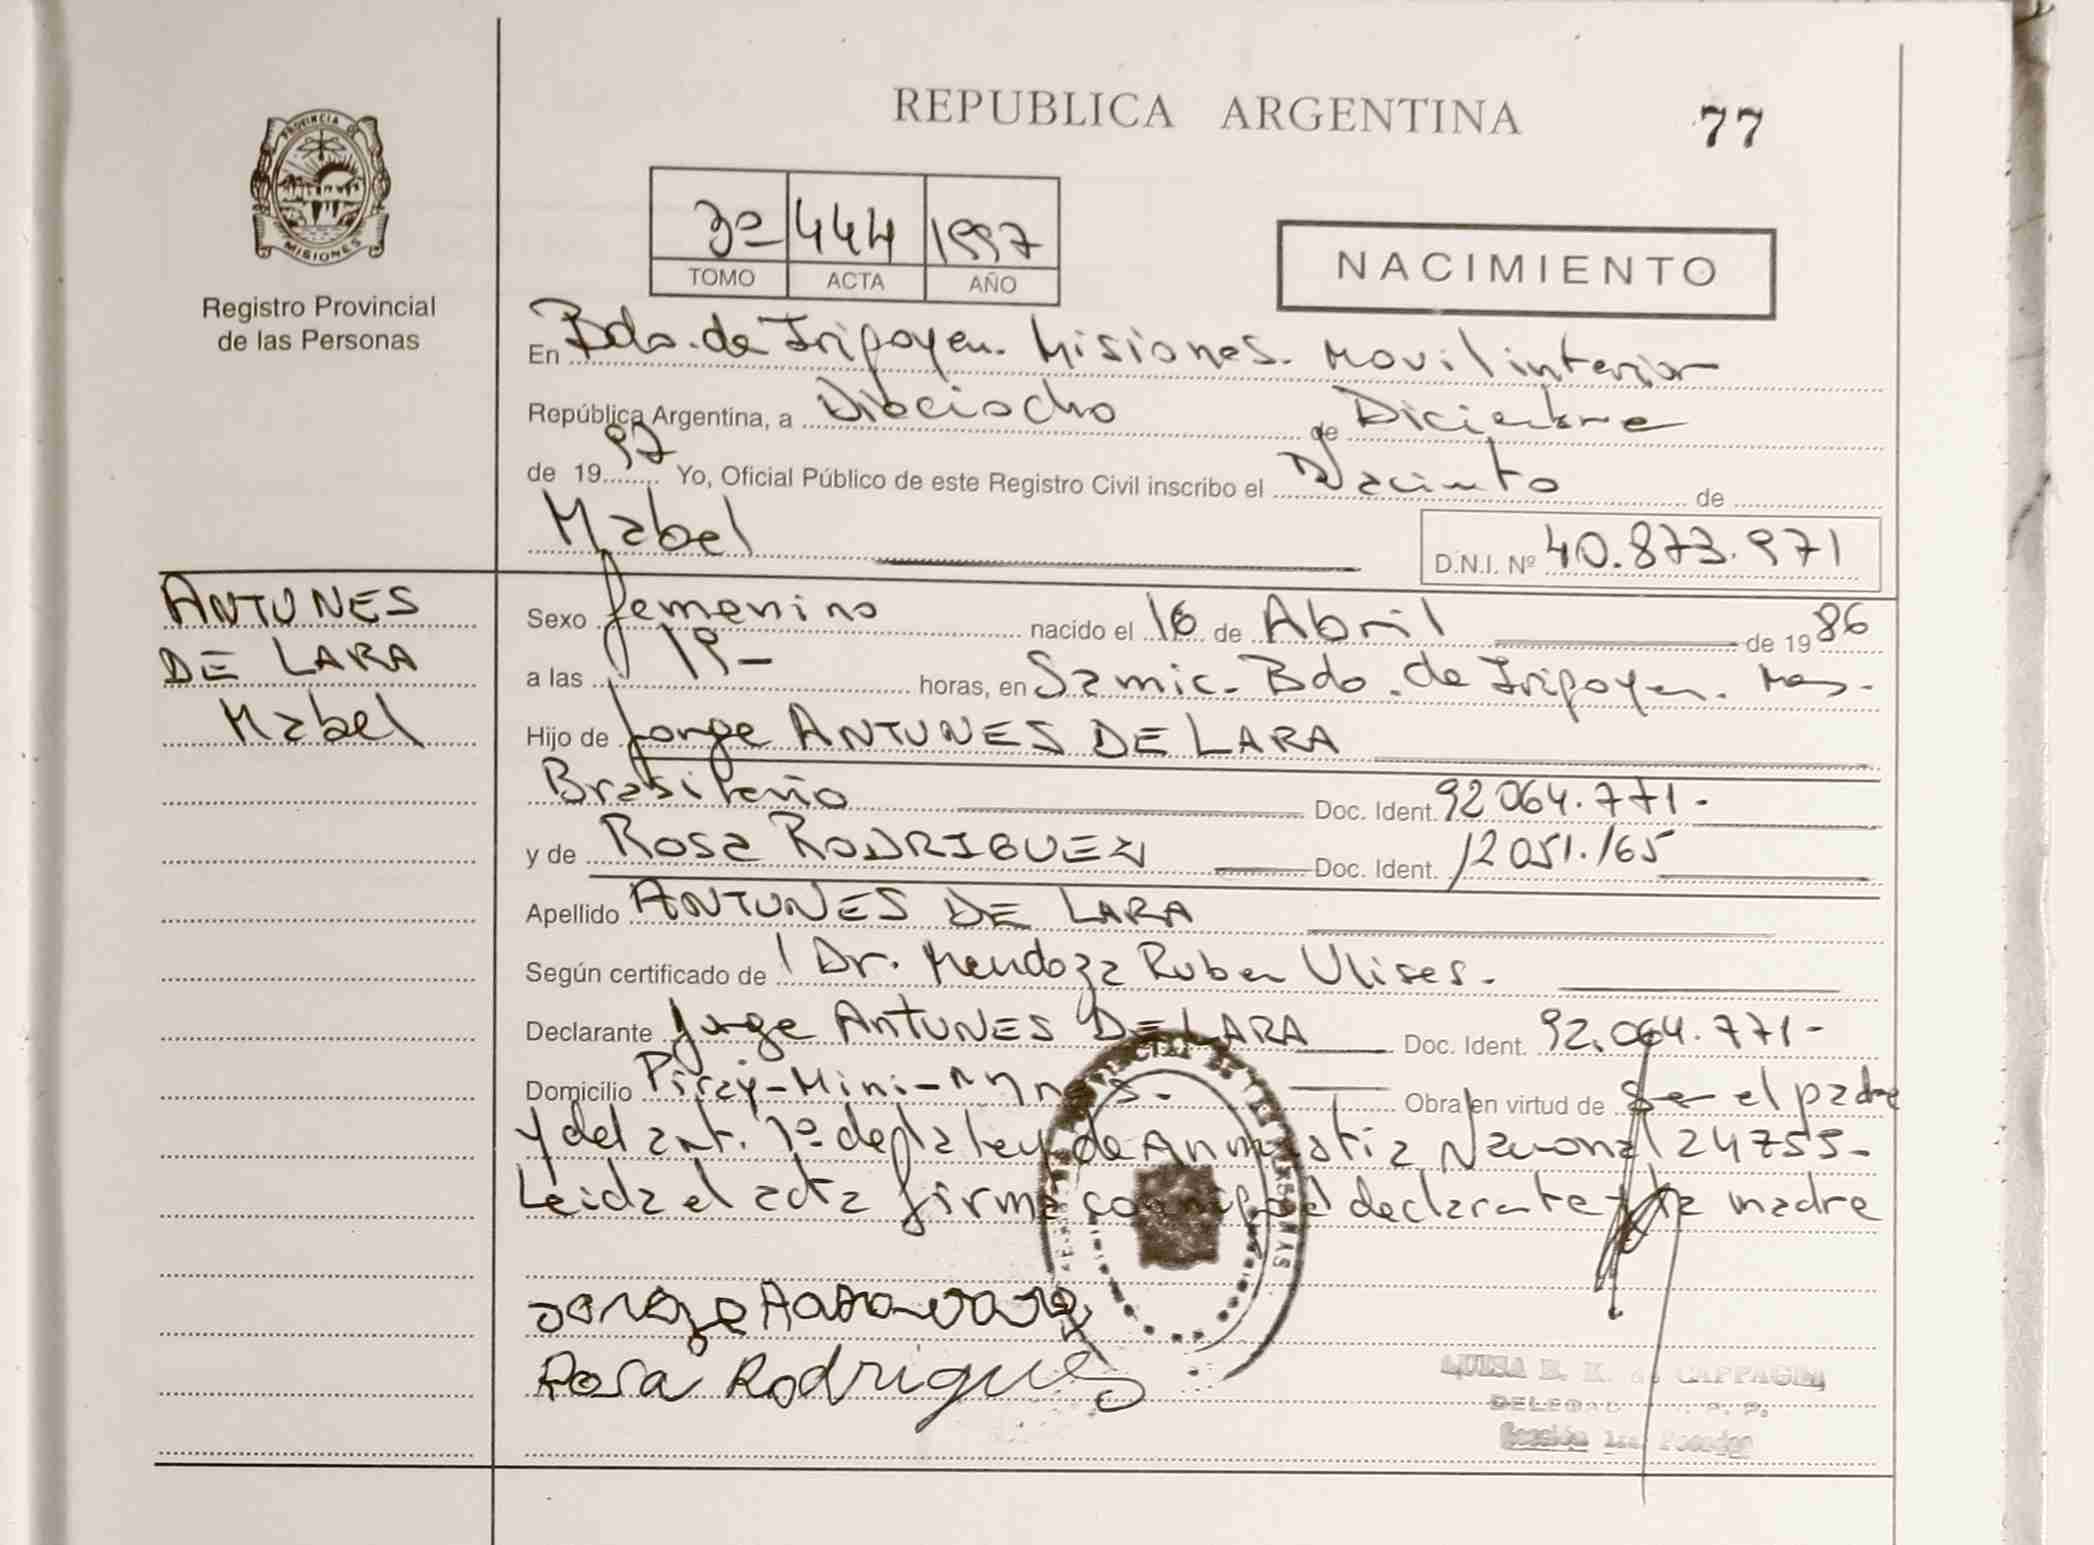 REPUBLICA ARGENTINA
77
PROVINCIA DE
MISIONES
Registro Provincial
de las Personas
3º 444 1997
TOMO ACTA AÑO
NACIMIENTO
En Bdo. de Irigoyen. Misiones. Movil interior
República Argentina, a Dieciocho de Diciembre
de 1997 Yo, Oficial Público de este Registro Civil inscribo el Nacimto de
Mabel
D.N.I. Nº 40.873.971
ANTUNES
DE LARA
Mabel
Sexo femenino nacido el 16 de Abril de 1986
a las 19- horas, en Samic. Bdo. de Irigoyen. Mnes.
Hijo de Jorge ANTUNES DE LARA
Brasileño Doc. Ident. 92 064.771-
y de Rosa RODRIGUEZ Doc. Ident. 12 051.165
Apellido ANTUNES DE LARA
Según certificado de Dr. Mendoza Ruben Ulises.
Declarante Jorge ANTUNES DE LARA Doc. Ident. 92.064.771-
Domicilio Piray-Mini- Obra en virtud de ser el padre
y del art. 1º de la ley de Amnistia Nacional 24755-
Leida el acta firma conmigo el declarante y la madre
Rosa Rodrigues
LUISA B. K. de CAPPAGLI
Sección 1ra. Posadas